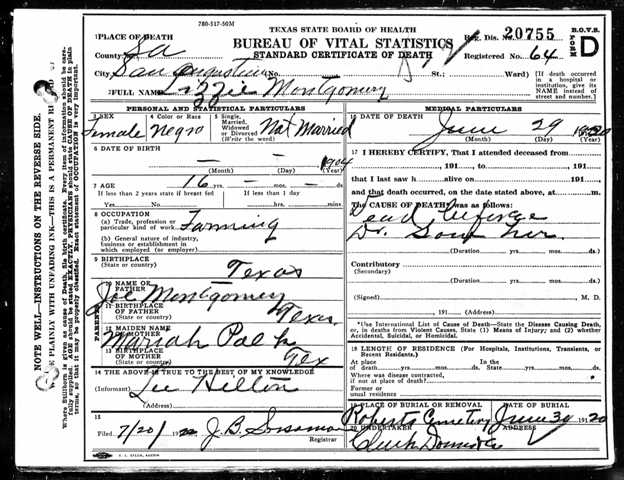 780-517-50M
TEXAS STATE BOARD OF HEALTH
BUREAU OF VITAL STATISTICS
STANDARD CERTIFICATE OF DEATH
Reg. Dis. No. 20755
Registered No. 64
B.O.V.S.
FORM
D
PLACE OF DEATH
County
City San Augustine No. St.; Ward)
[If death occurred in a hospital or institution, give its NAME instead of street and number.]
FULL NAME Lizzie Montgomery
PERSONAL AND STATISTICAL PARTICULARS
3 SEX
Female
4 Color or Race
Negro
5 Single, Married, Widowed or Divorced (Write the word)
Not Married
6 DATE OF BIRTH
— — 1904
(Month) (Day) (Year)
7 AGE
16 yrs. — mos. — ds.
If less than 2 years state if breast fed
If less than 1 day
Yes No hrs. min.
8 OCCUPATION
(a) Trade, profession or particular kind of work Farming
(b) General nature of industry, business or establishment in which employed (or employer)
9 BIRTHPLACE
(State or country) Texas
PARENTS
10 NAME OF FATHER
Joe Montgomery
11 BIRTHPLACE OF FATHER
(State or country) Texas
12 MAIDEN NAME OF MOTHER
Mariah
13 BIRTHPLACE OF MOTHER
(State or country) Tex
14 THE ABOVE IS TRUE TO THE BEST OF MY KNOWLEDGE
(Informant) Lee Hilton
(Address)
15
Filed 7/20/ 1920 J.B.
Registrar
MEDICAL PARTICULARS
16 DATE OF DEATH
June 29 1920
(Month) (Day) (Year)
17 I HEREBY CERTIFY, That I attended deceased from
191 , to 191 ,
that I last saw h alive on 191 ,
and that death occurred, on the date stated above, at m.
The CAUSE OF DEATH was as follows:
Dead
Dr.
(Duration) yrs. mos. ds.
Contributory
(Secondary)
(Duration) yrs. mos. ds.
(Signed) M. D.
191 (Address)
*Use International List of Cause of Death—State the Disease Causing Death, or, in deaths from Violent Causes, State (1) Means of Injury; and (2) whether Accidental, Suicidal, or Homicidal.
18 LENGTH OF RESIDENCE (For Hospitals, Institutions, Transients, or Recent Residents.)
At place of death yrs. mos. ds. In the State yrs. mos. ds.
Where was disease contracted, if not at place of death?
Former or usual residence
19 PLACE OF BURIAL OR REMOVAL
Roberts Cemetery
DATE
June 30 1920
20 UNDERTAKER
ADDRESS
NOTE WELL—INSTRUCTIONS ON THE REVERSE SIDE.
PLAINLY WITH UNFADING INK—THIS IS A PERMANENT
Where Stillborn is given as cause of Death, file birth certificate. Every item of information should be carefully supplied. AGE should be stated EXACTLY. PHYSICIANS should state CAUSE OF DEATH in plain terms, so that it may be properly classified. Exact statement of OCCUPATION is very important.